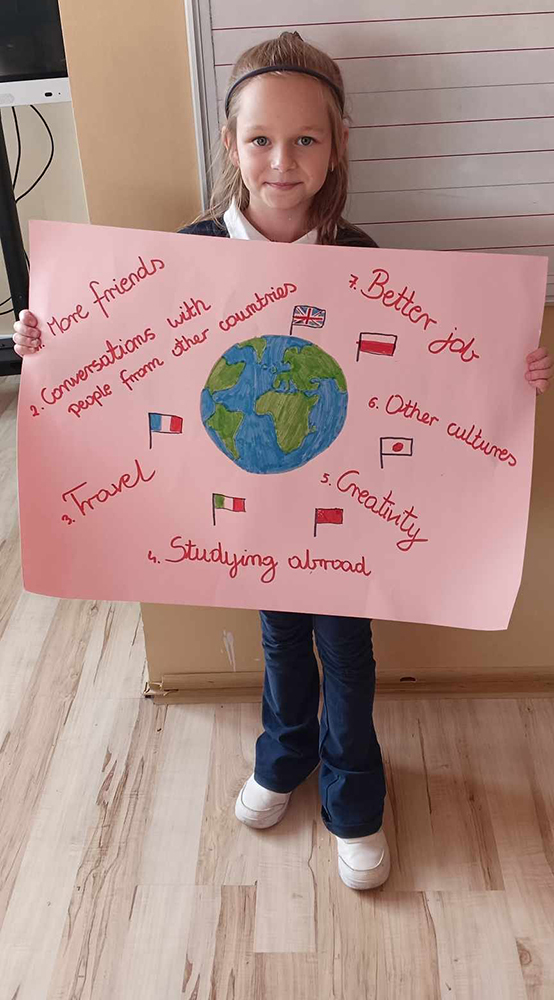 1. More friends
2. Conversations with
people from other countries
3. Travel
4. Studying abroad
5. Creativity
6. Other cultures
7. Better job